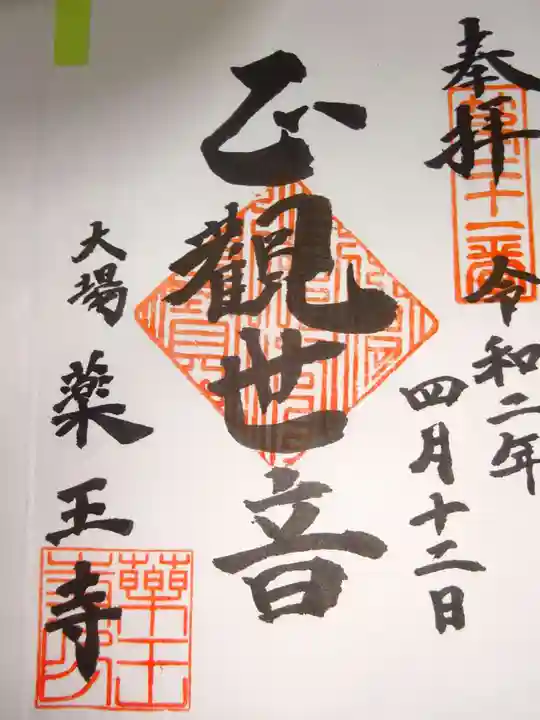 奉拝
第三十一番
令和二年
四月十二日
正観世音
大場
薬王寺